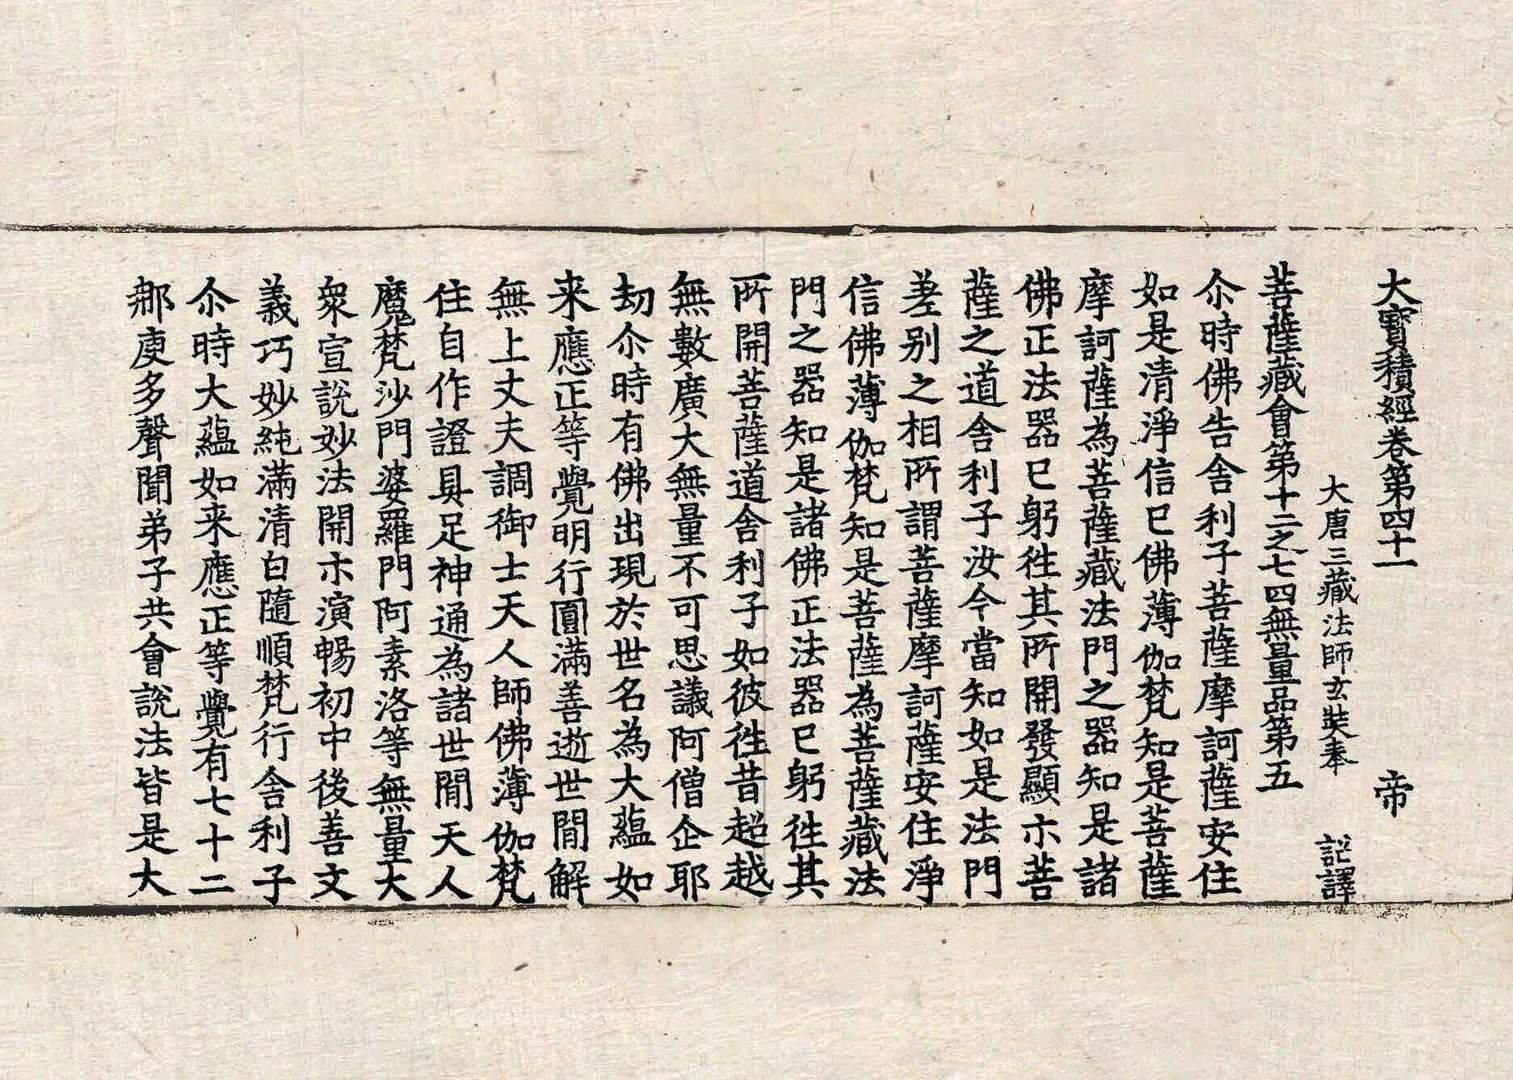 大寶積經卷第四十一　帝
大唐三藏法師玄奘奉　詔譯
菩薩藏會第十二之七四無量品第五
尒時佛告舍利子菩薩摩訶薩安住
如是清淨信已佛薄伽梵知是菩薩
摩訶薩為菩薩藏法門之器知是諸
佛正法器已躬徃其所開發顯示菩
薩之道舍利子汝今當知如是法門
差别之相所謂菩薩摩訶薩安住淨
信佛薄伽梵知是菩薩為菩薩藏法
門之器知是諸佛正法器已躬徃其
所開菩薩道舍利子如彼徃昔超越
無數廣大無量不可思議阿僧企耶
劫尒時有佛出現於世名為大蘊如
来應正等覺明行圓滿善逝世間解
無上丈夫調御士天人師佛薄伽梵
住自作證具足神通為諸世間天人
魔梵沙門婆羅門阿素洛等無量大
衆宣說妙法開示演暢初中後善文
義巧妙純滿清白隨順梵行舍利子
尒時大蘊如来應正等覺有七十二
那庾多聲聞弟子共會說法皆是大